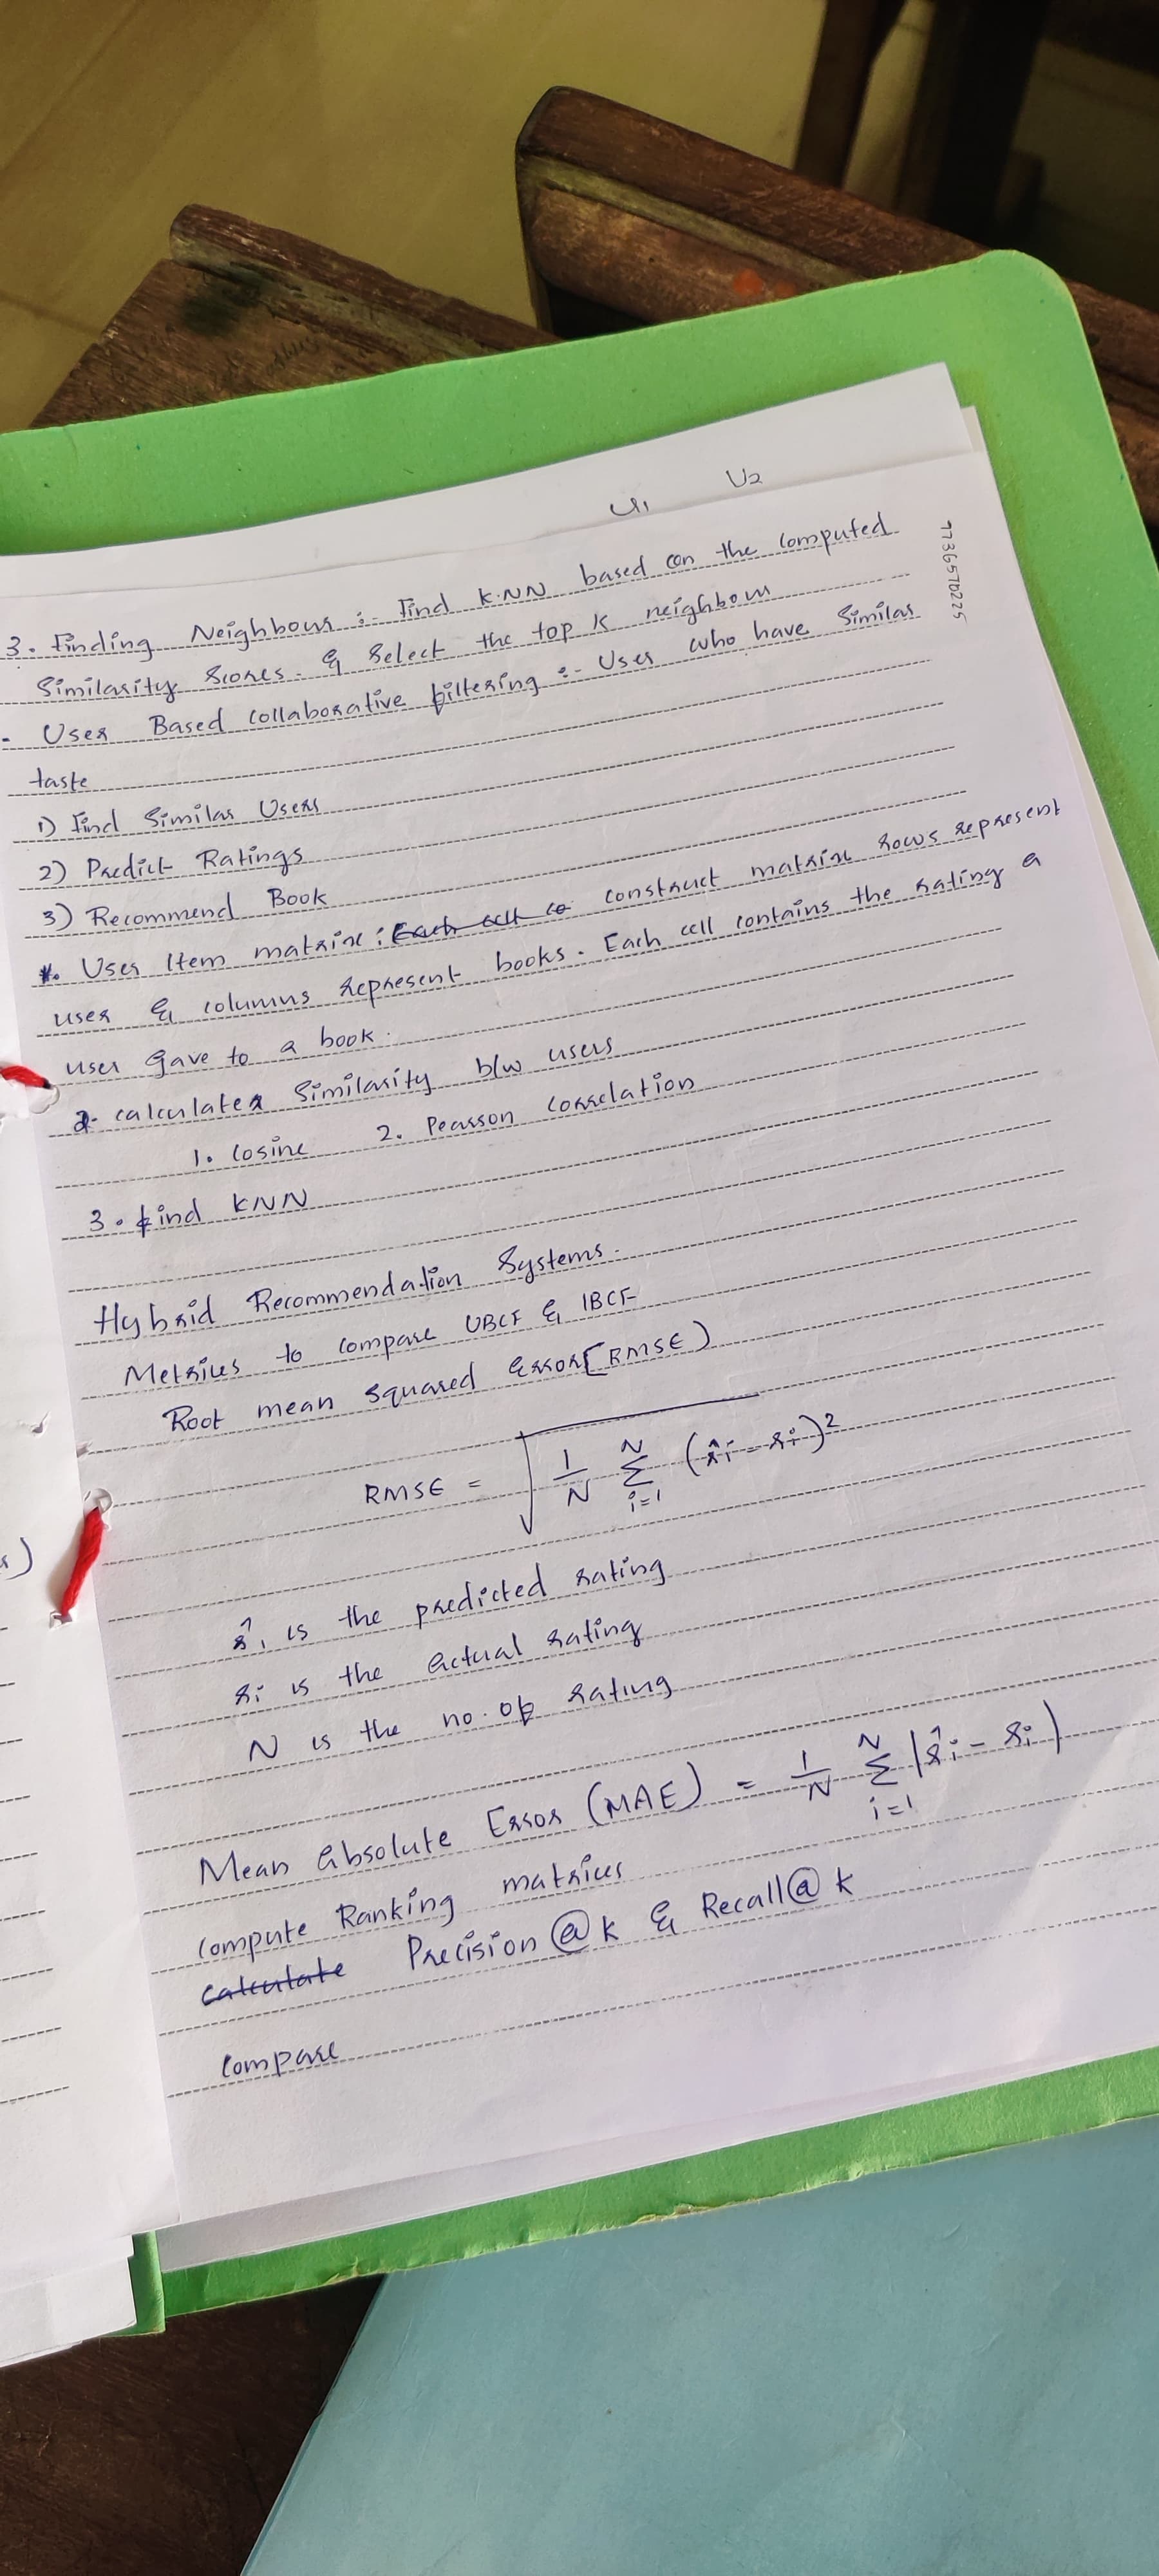 U1 U2
7736570225
3. Finding Neighbours :- Find K.NN based on the computed
Similarity Scores. & Select the top K neighbours
- User Based collaborative filtering :- User who have Similar
taste
1) Find Similar Users
2) Predict Ratings
3) Recommend Book
1. User Item matrix : Each cell co construct matrix rows represent
user & columns represent books. Each cell contains the rating a
user gave to a book.
2. calculate Similarity b/w users
1. Cosine 2. Pearson Correlation
3. find KNN
Hybrid Recommendation Systems.
Metrics to compare UBCF & IBCF
Root mean squared Error [RMSE)
RMSE = √ 1/N N Σ i=1 (r̂i - ri)²
r̂i is the predicted rating
ri is the actual rating
N is the no. of rating
Mean Absolute Error (MAE) = 1/N N Σ i=1 |r̂i - ri)
Compute Ranking matrices
calculate Precision @ k & Recall @ k
Compare
s)